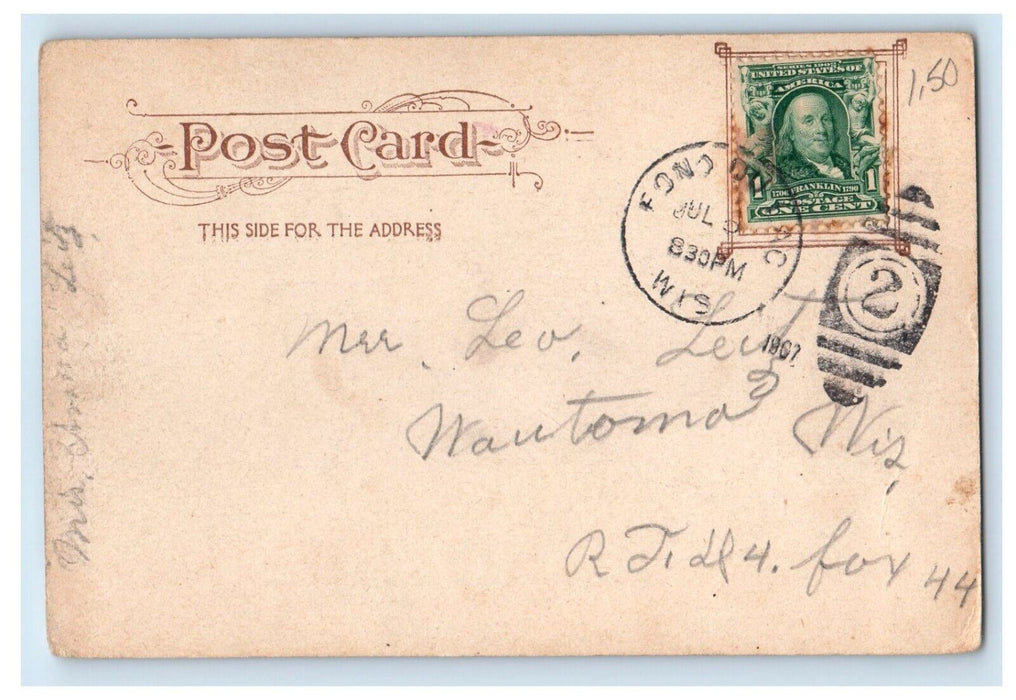 Post Card
THIS SIDE FOR THE ADDRESS
SERIES 1902
UNITED STATES OF
AMERICA
1706 FRANKLIN 1790
1 1
POSTAGE
ONE CENT
1,50
FOND DU LAC
JUL
830PM
WIS
1907
2
Mrr. Leo.
Wautoma Wis,
R F. D 4. Box 44
Mrs. Anna